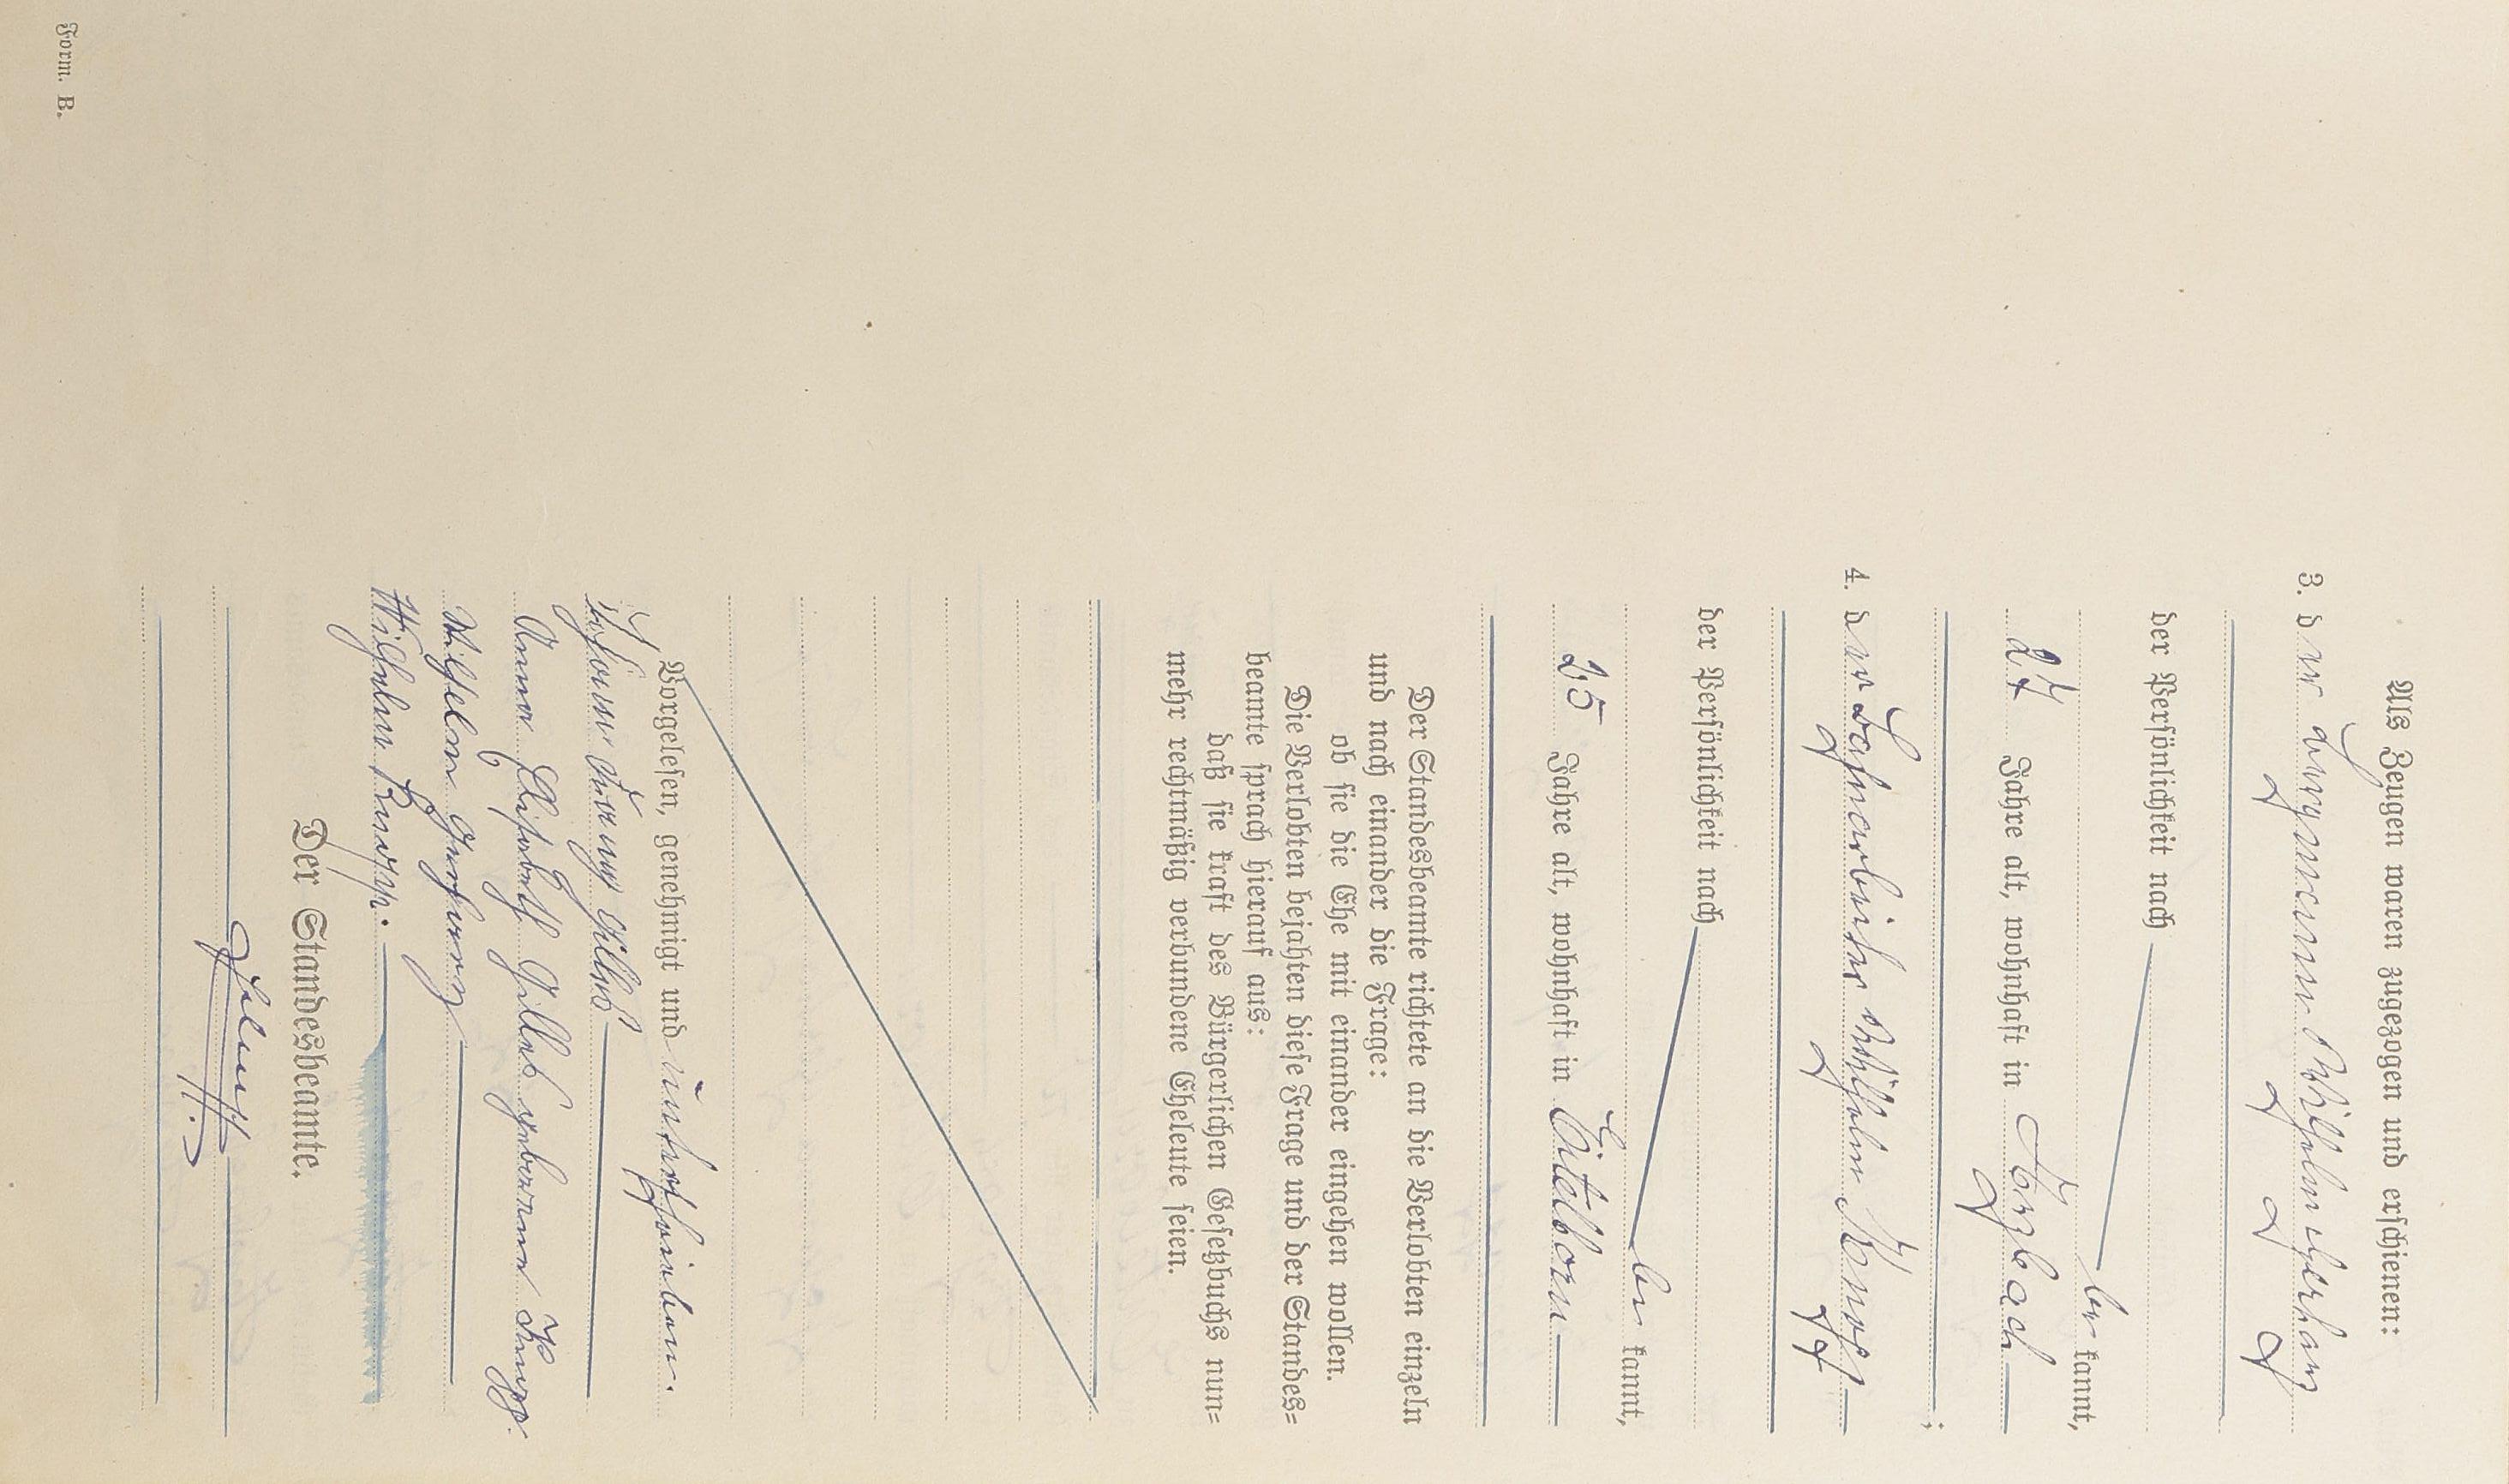 Als Zeugen waren zugezogen und erschienen:
3. der Bergmann Wilhelm
der Persönlichkeit nach
be kannt,
24 Jahre alt, wohnhaft in
4. der Wilhelm Knopp
der Persönlichkeit nach
be kannt,
25 Jahre alt, wohnhaft in Eitelborn
Der Standesbeamte richtete an die Verlobten einzeln
und nach einander die Frage:
ob sie die Ehe mit einander eingehen wollen.
Die Verlobten bejahten diese Frage und der Standes=
beamte sprach hierauf aus:
daß sie kraft des Bürgerlichen Gesetzbuchs nun=
mehr rechtmäßig verbundene Eheleute seien.
Vorgelesen, genehmigt und unterschrieben.
Johann Gilles
Anna Elisabeth Gilles geborene Knopp.
Wilhelm
Wilhelm Knopp.
Der Standesbeamte.
Form. B.